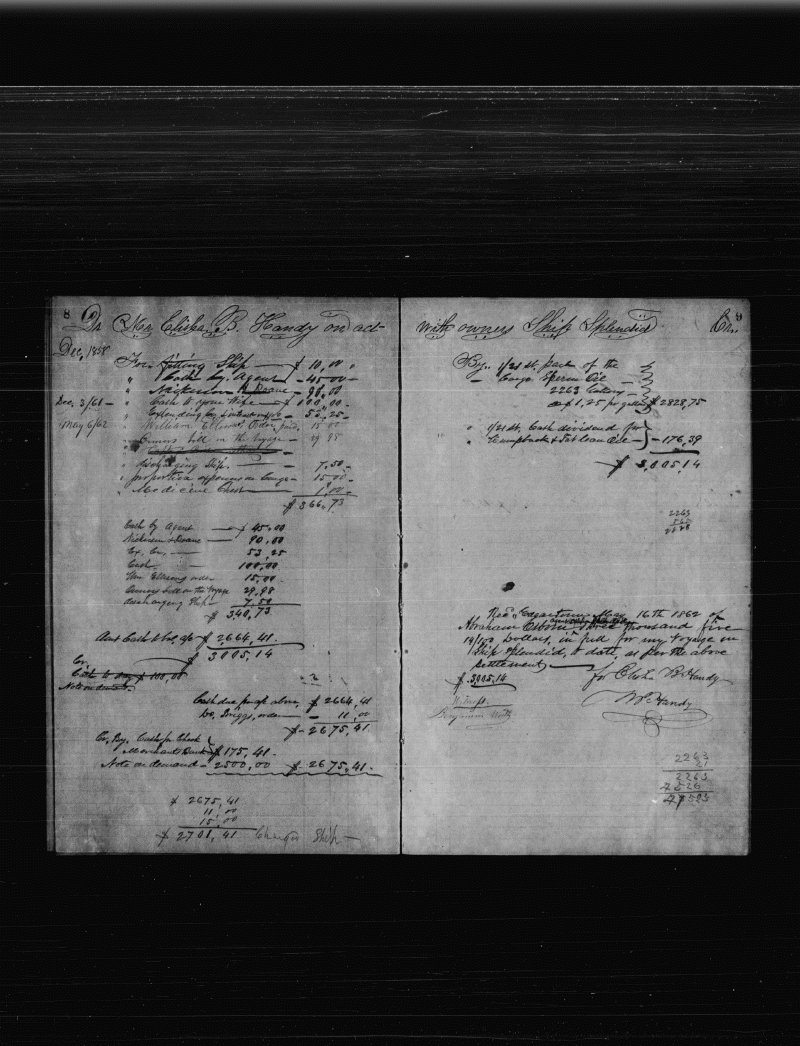 8 Dr Mr Elisha B. Handy on act
Dec, 1858
For fitting Ship $ 10,00
" Cash by Agent 45 00
" Nickerson & Doane 90,00
Dec, 3/61 " Cash to your Wife $ 100,00
" 53,25
May 6/62 " William Ellisons Order, paid, 15 00
bill on the Voyage 29 98
" discharging Ship. 7,50
" proportion expences on Cargo 15,00
" Medicine Chest 1,00
$ 366,73
Cash by Agent $ 45,00
Nickerson & Doane 90,00
Ex, On, 53,25
Cash 100,00
Wm Ellisons order 15,00
bill on the Voyage 29,98
discharging Ship 7,50
$ 340,73
Amt Cash to bal, a/c $ 2,664,41
$ 3005,14
Cr,
Cash to day $ 100,00
Note on demand
Cash due, brought above, $ 2664,41
Do, Briggs, order 11,00
$ 2675,41
Cr, By, Cash pr Check
Merchant Bank $ 175,41
Note on demand 2500,00 $ 2675,41
$ 2675,41
11 00
15,00
$ 2701,41 Charges Ship
with owners Ship Splendid Cr. 9
By, 1/21st, part of the
Cargo Sperm Oil
2263
@ $ 1,25 pr gal $ 2828,75
" 1/21st, Cash dividend for
Humpback & Oil 176,39
$ 3,005,14
2263
2828
Rec'd, Edgartown May 16th 1862 of
Abraham Osborn Three thousand five
14/100 Dollars, in full for my Voyage in
Ship Splendid, to date, as per the above
settlement
$ 3,005,14 for Elisha B Handy
Witness. W Handy
Benjamin
2263
21
2263
4526
47523